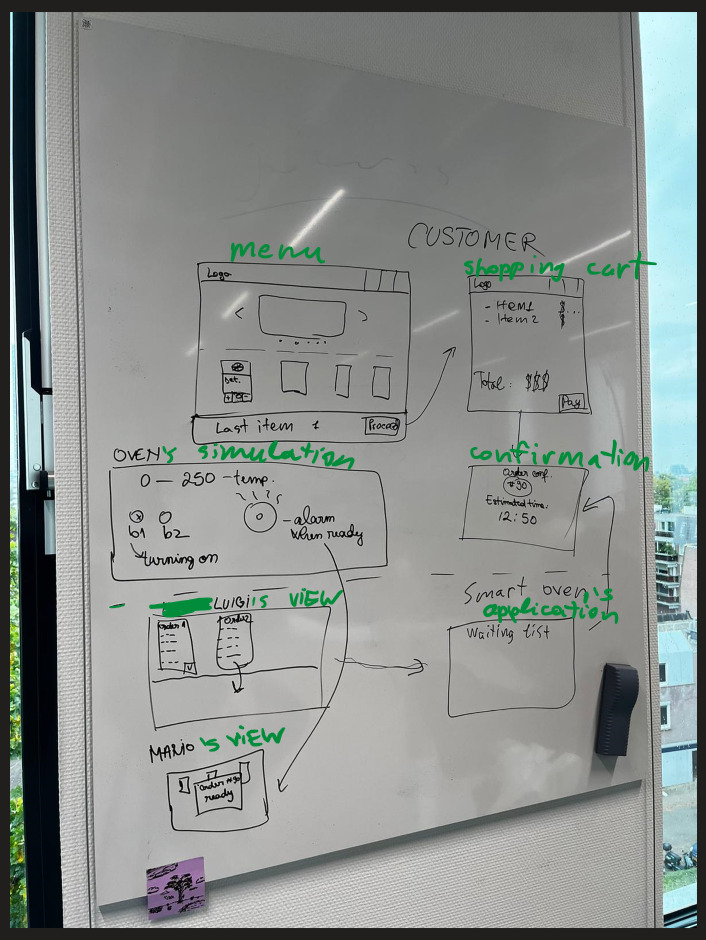 CUSTOMER
menu
Logo
Det.
Last item 1
Proceed
shopping cart
Logo
- Item1 $...
- Item 2 $
Total: $$$
Pay
OVEN's simulation
0 — 250 — temp.
b1 b2
turning on
- alarm
when ready
confirmation
Order conf.
#90
Estimated time:
12:50
LUIGI's VIEW
Order 1
Order 2
Smart oven's
application
Waiting list
MARIO's VIEW
Order #90
ready